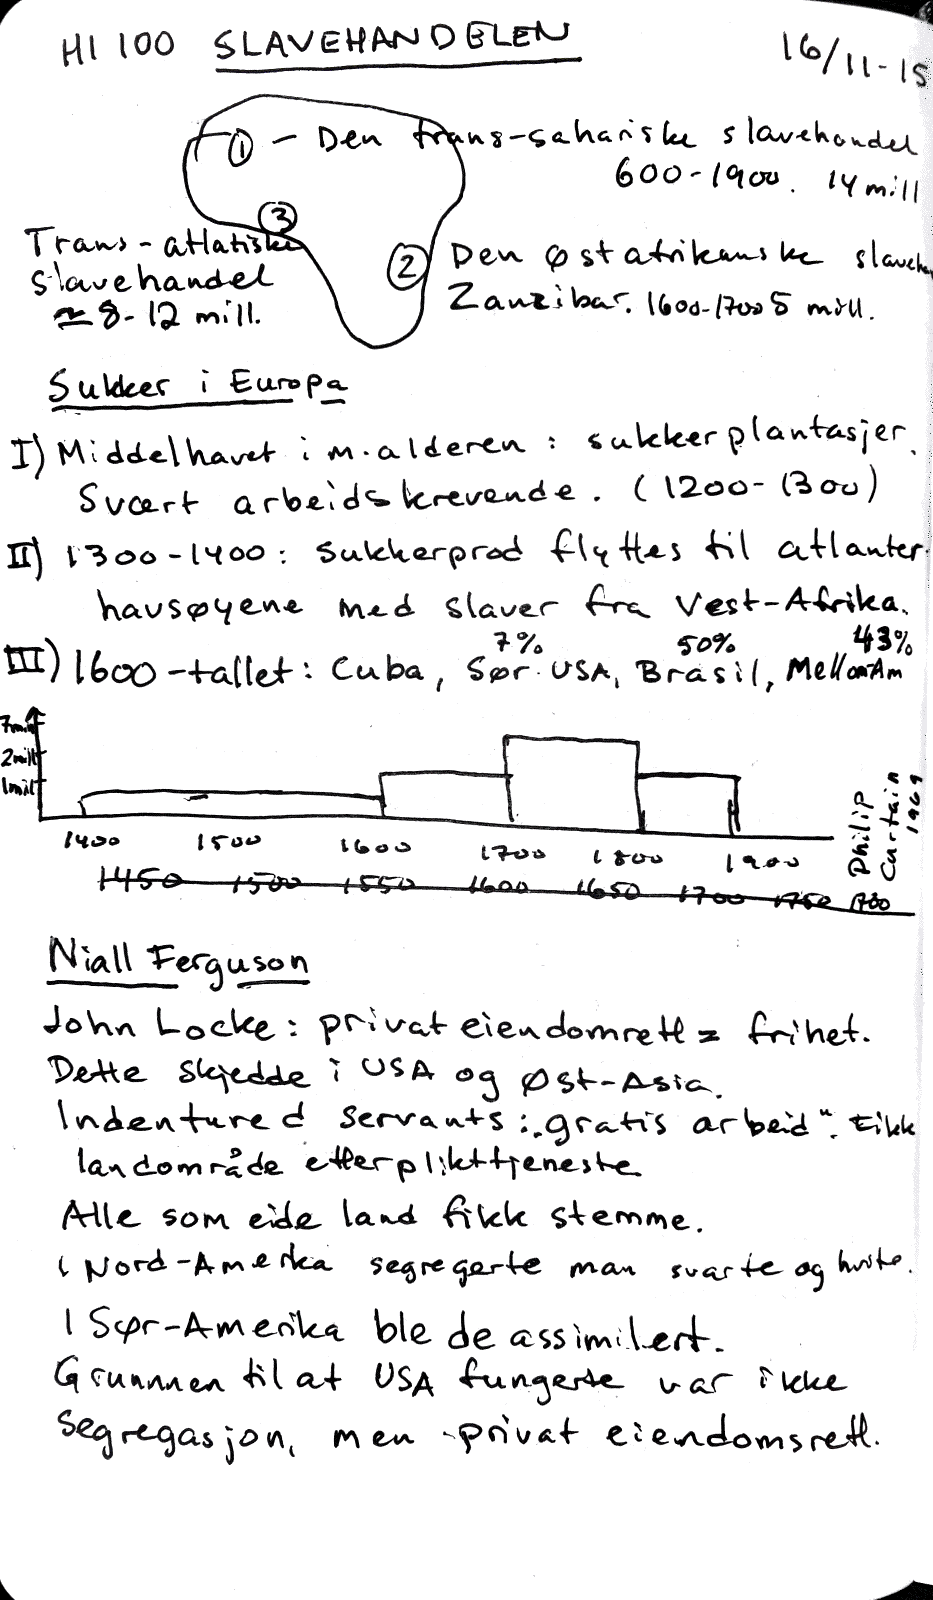 HI 100 SLAVEHANDELEN 16/11-15
① - Den trans-sahariske slavehandel
600-1900. 14 mill
③
Trans-atlatiske
slavehandel
≈ 8-12 mill.
② Den østafrikanske slavehan
Zanzibar. 1600-1700 5 mill.
Sukker i Europa
I) Middelhavet i m.alderen : sukkerplantasjer.
Svært arbeidskrevende. (1200-1300)
II) 1300-1400: Sukkerprod flyttes til atlanter-
havsøyene med slaver fra Vest-Afrika.
7% 50% 43%
III) 1600-tallet: Cuba, Sør-USA, Brasil, MellomAm
7mill
2mill
1mill
1400 1500 1600 1700 1800 1900
1450 1500 1550 1600 1650 1700 1750 1700
Philip
Curtain
1969
Niall Ferguson
John Locke: privat eiendomrett = frihet.
Dette skjedde i USA og Øst-Asia.
Indentured servants: „gratis arbeid". Fikk
landområde etter plikttjeneste
Alle som eide land fikk stemme.
I Nord-Amerika segregerte man svarte og hvite.
I Sør-Amerika ble de assimilert.
Grunnnen til at USA fungerte var ikke
segregasjon, men privat eiendomsrett.